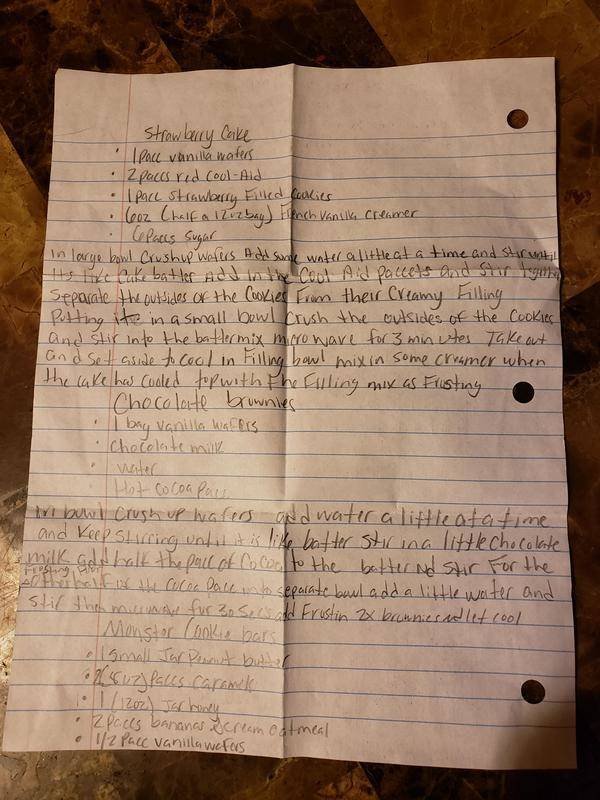 Strawberry Cake
• 1 Pacc vanilla wafers
• 2 paccs red Cool-Aid
• 1 Pacc Strawberry Filled Cookies
• 6oz (half a 12oz bag) French vanilla creamer
• 6 Paccs Sugar
In large bowl Crush up wafers Add some water a little at a time and stir until
Its like Cake batter Add in the Cool Aid Paccets and Stir
Separate the outsides of the Cookies From their Creamy Filling
Putting in a small bowl Crush the outsides of the Cookies
and stir into the batter mix microwave for 3 minutes Take out
and set aside to cool in Filling bowl mix in some creamer when
the cake has cooled top with The Filling mix as Frosting
Chocolate brownies
• 1 bag vanilla wafers
• Chocolate milk
• water
Hot cocoa Pacc
In bowl Crush up wafers add water a little at a time
and Keep stirring until it is like batter Stir in a little Chocolate
milk add half the pacc of Cocoa to the batter Nd stir For the
Frosting
other half of the Cocoa Pacc into separate bowl add a little water and
stir then microwave for 30 Secs add Frostin 2x brownies nd let cool
Monster Cookie bars
• 1 Small Jar Peanut butter
• 2 (8oz) Paccs caramels
• 1 (12oz) Jar honey
• 2 Paccs bananas & cream oatmeal
• 1/2 Pacc vanilla wafers